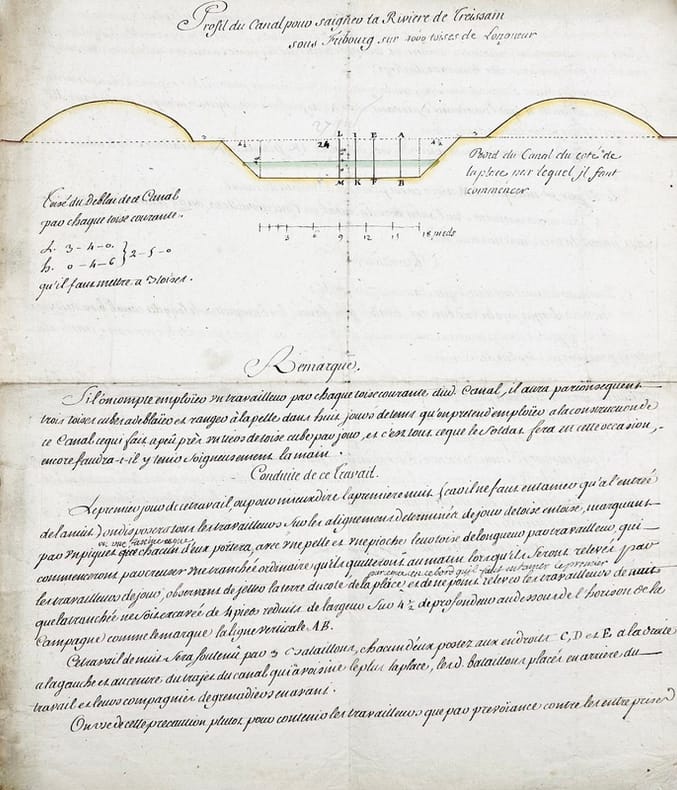 Profil du Canal pour saigner la Riviere de Treissam
sous Fribourg sur 1000 toises de Longueur
2 4½ 24 L I E A 4½ 2
M K F B
Bord du Canal du coté de
la place par lequel il faut
commencer
Toisé du deblai de ce Canal
par chaque toise courante.
L. 3-4-0.
h. 0-4-6 } 2-5-0
qu'il faut mettre a 3 toises.
3 6 9 12 15 18 pieds
Remarque.
Si l'on compte emploïer un travailleur par chaque toise courante dud. Canal, il aura par consequent
trois toises cubes a deblaïer et ranger à la pelle dans huit jours de tems qu'on pretend emploïer a la construction de
ce Canal ce qui fait apeu près un tiers de toise cube par jour, et c'est tout ce que le Soldat fera en cette occasion,
encore faudra-t-il y tenir soigneusement la main.
Conduite de ce Travail.
Le premier jour de ce travail, ou pour mieux dire la premiere nuit (car il ne faut entamer qu'a l'entrée
de la nuit) on disposera tous les travailleurs sur les alignemens determinés de jour de toise en toise, marquant
par un piquet et une fascine que chacun d'eux portera, avec une pelle et une pioche leur toise de longueur par travailleur, qui
commenceront par creuser une tranchée ordinaire qu'ils quitteront au matin lorsqu'ils seront relevés par
les travailleurs de jour, observant de jetter la terre du coté de la place et de ne point relever les travailleurs de nuit
parceque c'est ce bord qu'il faut entamer le premier
que la tranchée ne soit excavée de 4 pieds reduits de largeur sur 4½ de profondeur au dessous de l'horison de la
Campagne comme le marque la ligne verticale AB.
Ce travail de nuit sera soutenu par 3 Bataillons, chacun d'eux postez aux endroits C, D et E a la droite
a la gauche et au centre du trajet du canal qui avoisine le plus la place, les d. bataillons placés en arriere du
travail et leurs compagnies de grenadiers en avant.
On use de cette precaution plutot pour contenir les travailleurs que par prevoïance contre les entreprises